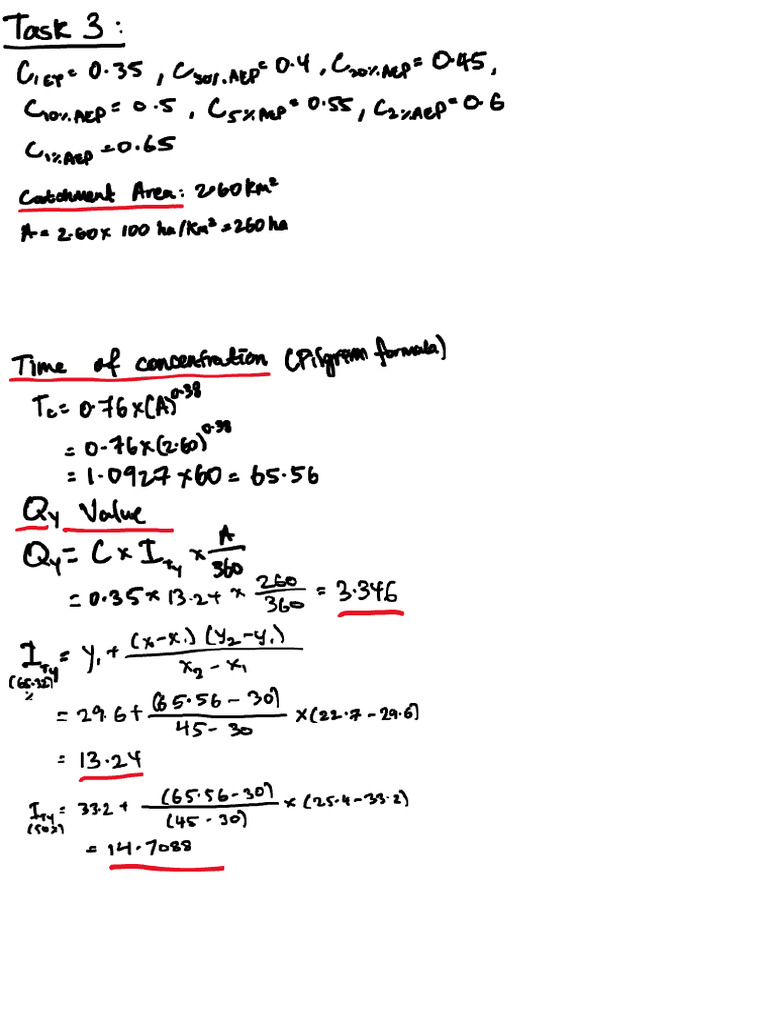 Task 3:
C1EY = 0.35, C30%AEP = 0.4, C20%AEP = 0.45,
C10%AEP = 0.5, C5%AEP = 0.55, C2%AEP = 0.6
C1%AEP = 0.65
Catchment Area: 2.60 km²
A = 2.60 x 100 ha/km² = 260 ha
Time of concentration (Pilgrem formula)
Tc = 0.76 x (A)^0.38
= 0.76 x (2.60)^0.38
= 1.0927 x 60 = 65.56
Qy Value
Qy = C x I_Ty x A/360
= 0.35 x 13.24 x 260/360 = 3.346
I_Ty = y1 + (x - x1)(y2 - y1) / x2 - x1
= 29.6 + (65.56 - 30) / 45 - 30 x (22.7 - 29.6)
= 13.24
I_Ty (50%) = 33.2 + (65.56 - 30) / (45 - 30) x (25.4 - 33.2)
= 14.7088